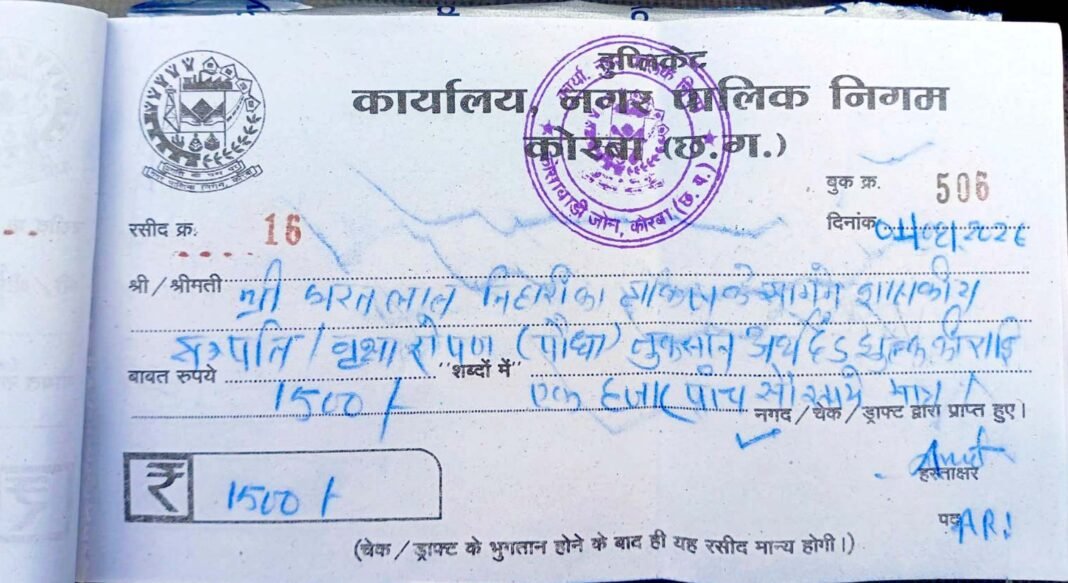 डुप्लिकेट
कार्यालय, नगर पालिक निगम
कोरबा (छ.ग.)
कोसाबाडी जोन, कोरबा (छ. ग.)
बुक क्र. 506
रसीद क्र. 16
दिनांक
श्री / श्रीमती श्री भरत लाल निहारिका के शासकीय
/ वृक्षा रोपण (पौधा) नुकसान अर्थदंड शुल्क
बावत रुपये 1500/- "शब्दों में" एक हजार पांच सौ रुपये मात्र
नगद / चेक / ड्राफ्ट द्वारा प्राप्त हुए।
हस्ताक्षर
₹ 1500/-
पद ARI
(चेक / ड्राफ्ट के भुगतान होने के बाद ही यह रसीद मान्य होगी।)